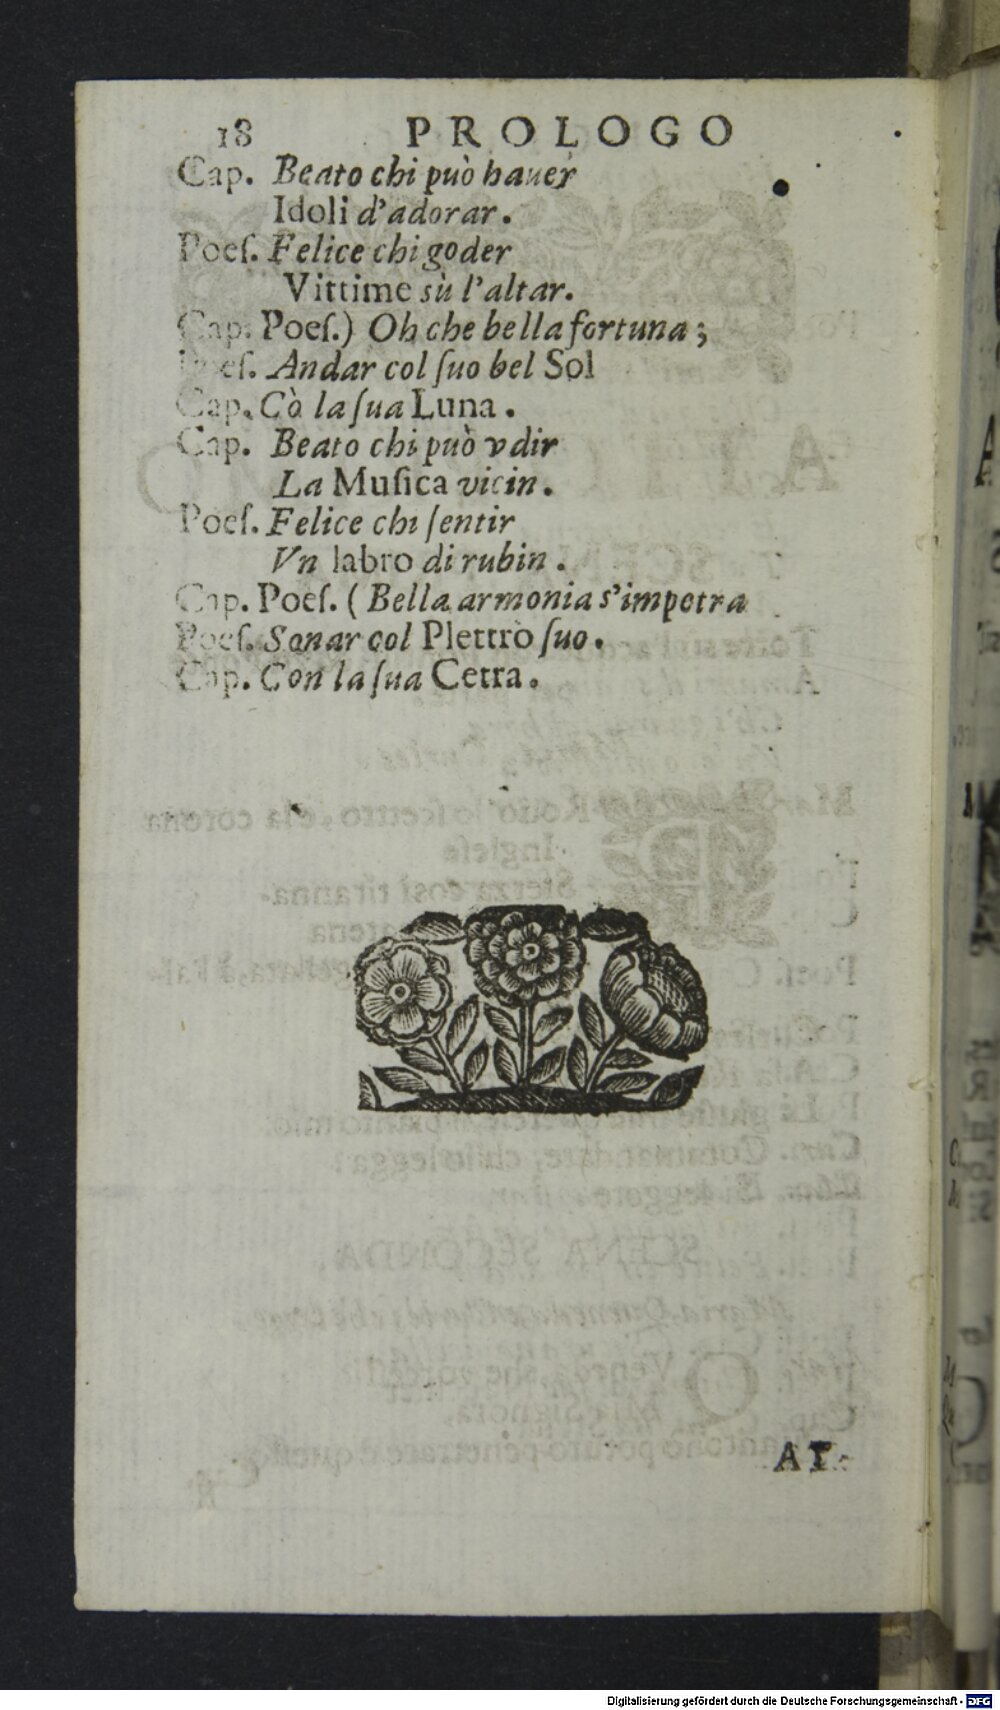 18 PROLOGO
Cap. Beato chi può hauer
Idoli d'adorar.
Poeſ. Felice chi goder
Vittime sù l'altar.
Cap. Poeſ.) Oh che bella fortuna;
Poeſ. Andar col ſuo bel Sol
Cap. Cò la ſua Luna.
Cap. Beato chi può vdir
La Muſica vicin.
Poeſ. Felice chi ſentir
Vn labro di rubin.
Cap. Poeſ. (Bella armonia s'impetra
Poeſ. Sonar col Plettro ſuo.
Cap. Con la ſua Cetra.
AT-
Digitalisierung gefördert durch die Deutsche Forschungsgemeinschaft - DFG